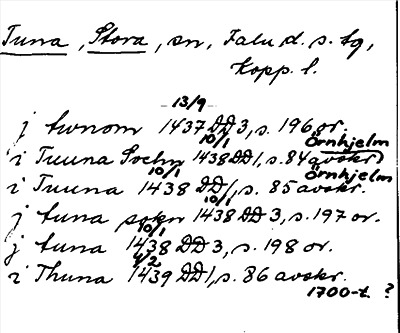 Tuna, Stora, sn, Falu d. s. tg,
Kopp. l.
13/9
j twnom 1437 DD 3, s. 196 or.
10/1 Örnhjelm
i Tuuna Sochn 1438 DD 1, s. 84 avskr.
10/1 Örnhjelm
i Tuuna 1438 DD 1, s. 85 avskr.
10/1
j tuna sokn 1438 DD 3, s. 197 or.
10/1
j tuna 1438 DD 3, s. 198 or.
4/2
i Thuna 1439 DD 1, s. 86 avskr.
1700-t. ?